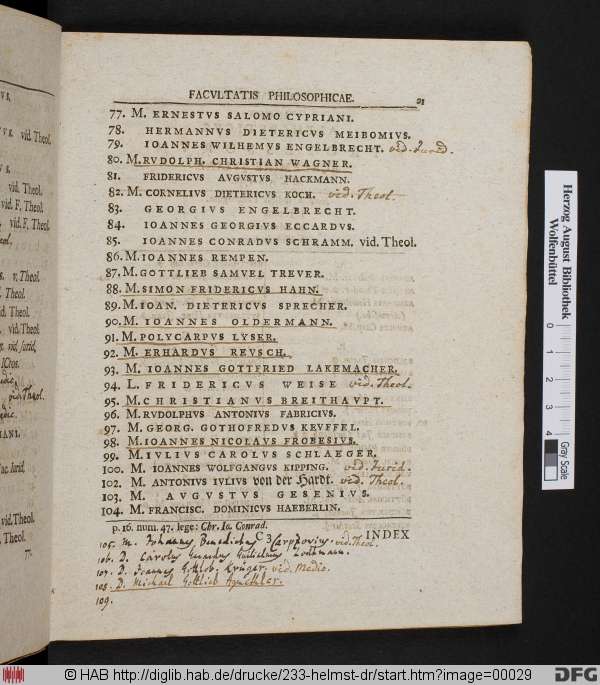 FACVLTATIS PHILOSOPHICAE. 21
77. M. ERNESTVS SALOMO CYPRIANI.
78. HERMANNVS DIETERICVS MEIBOMIVS.
79. IOANNES WILHEMVS ENGELBRECHT. vid. Jurid.
80. M. RVDOLPH. CHRISTIAN WAGNER.
81. FRIDERICVS AVGVSTVS HACKMANN.
82. M. CORNELIVS DIETERICVS KOCH. vid. Theol.
83. GEORGIVS ENGELBRECHT.
84. IOANNES GEORGIVS ECCARDVS.
85. IOANNES CONRADVS SCHRAMM. vid. Theol.
86. M. IOANNES REMPEN.
87. M. GOTTLIEB SAMVEL TREVER.
88. M. SIMON FRIDERICVS HAHN.
89. M. IOAN. DIETERICVS SPRECHER.
90. M. IOANNES OLDERMANN.
91. M. POLYCARPVS LYSER.
92. M. ERHARDVS REVSCH.
93. M. IOANNES GOTTFRIED LAKEMACHER.
94. L. FRIDERICVS WEISE vid. Theol.
95. M. CHRISTIANVS BREITHAVPT.
96. M. RVDOLPHVS ANTONIVS FABRICIVS.
97. M. GEORG. GOTHOFREDVS KEVFFEL.
98. M. IOANNES NICOLAVS FROBESIVS.
99. M. IVLIVS CAROLVS SCHLAEGER.
100. M. IOANNES WOLFGANGVS KIPPING. vid. Jurid.
102. M. ANTONIVS IVLIVS von der Hardt. vid. Theol.
103. M. AVGVSTVS GESENIVS.
104. M. FRANCISC. DOMINICVS HAEBERLIN.
p. 16. num. 47. lege: Chr. Io. Conrad.
C 3 INDEX
105. M. Johannes Benedictus Carpzovius. vid. Theol.
106. D. Carolus
107. D. Joannes Gottlob. Krüger. vid. Medic.
108. D. Michael Gottlieb
109.
VS.
vid. Theol.
vid. Theol.
vid. F. Theol.
vid. F. Theol.
v. Theol.
Theol.
vid. Theol.
vid. Theol
vid. Jurid,
ICtos.
vid. Theol.
IANI.
Fac. Jurid.
vid. Theol.
Theol.
77.
Herzog August Bibliothek
Wolfenbüttel
0 1 2 3 4
Gray Scale
© HAB http://diglib.hab.de/drucke/233-helmst-dr/start.htm?image=00029
DFG